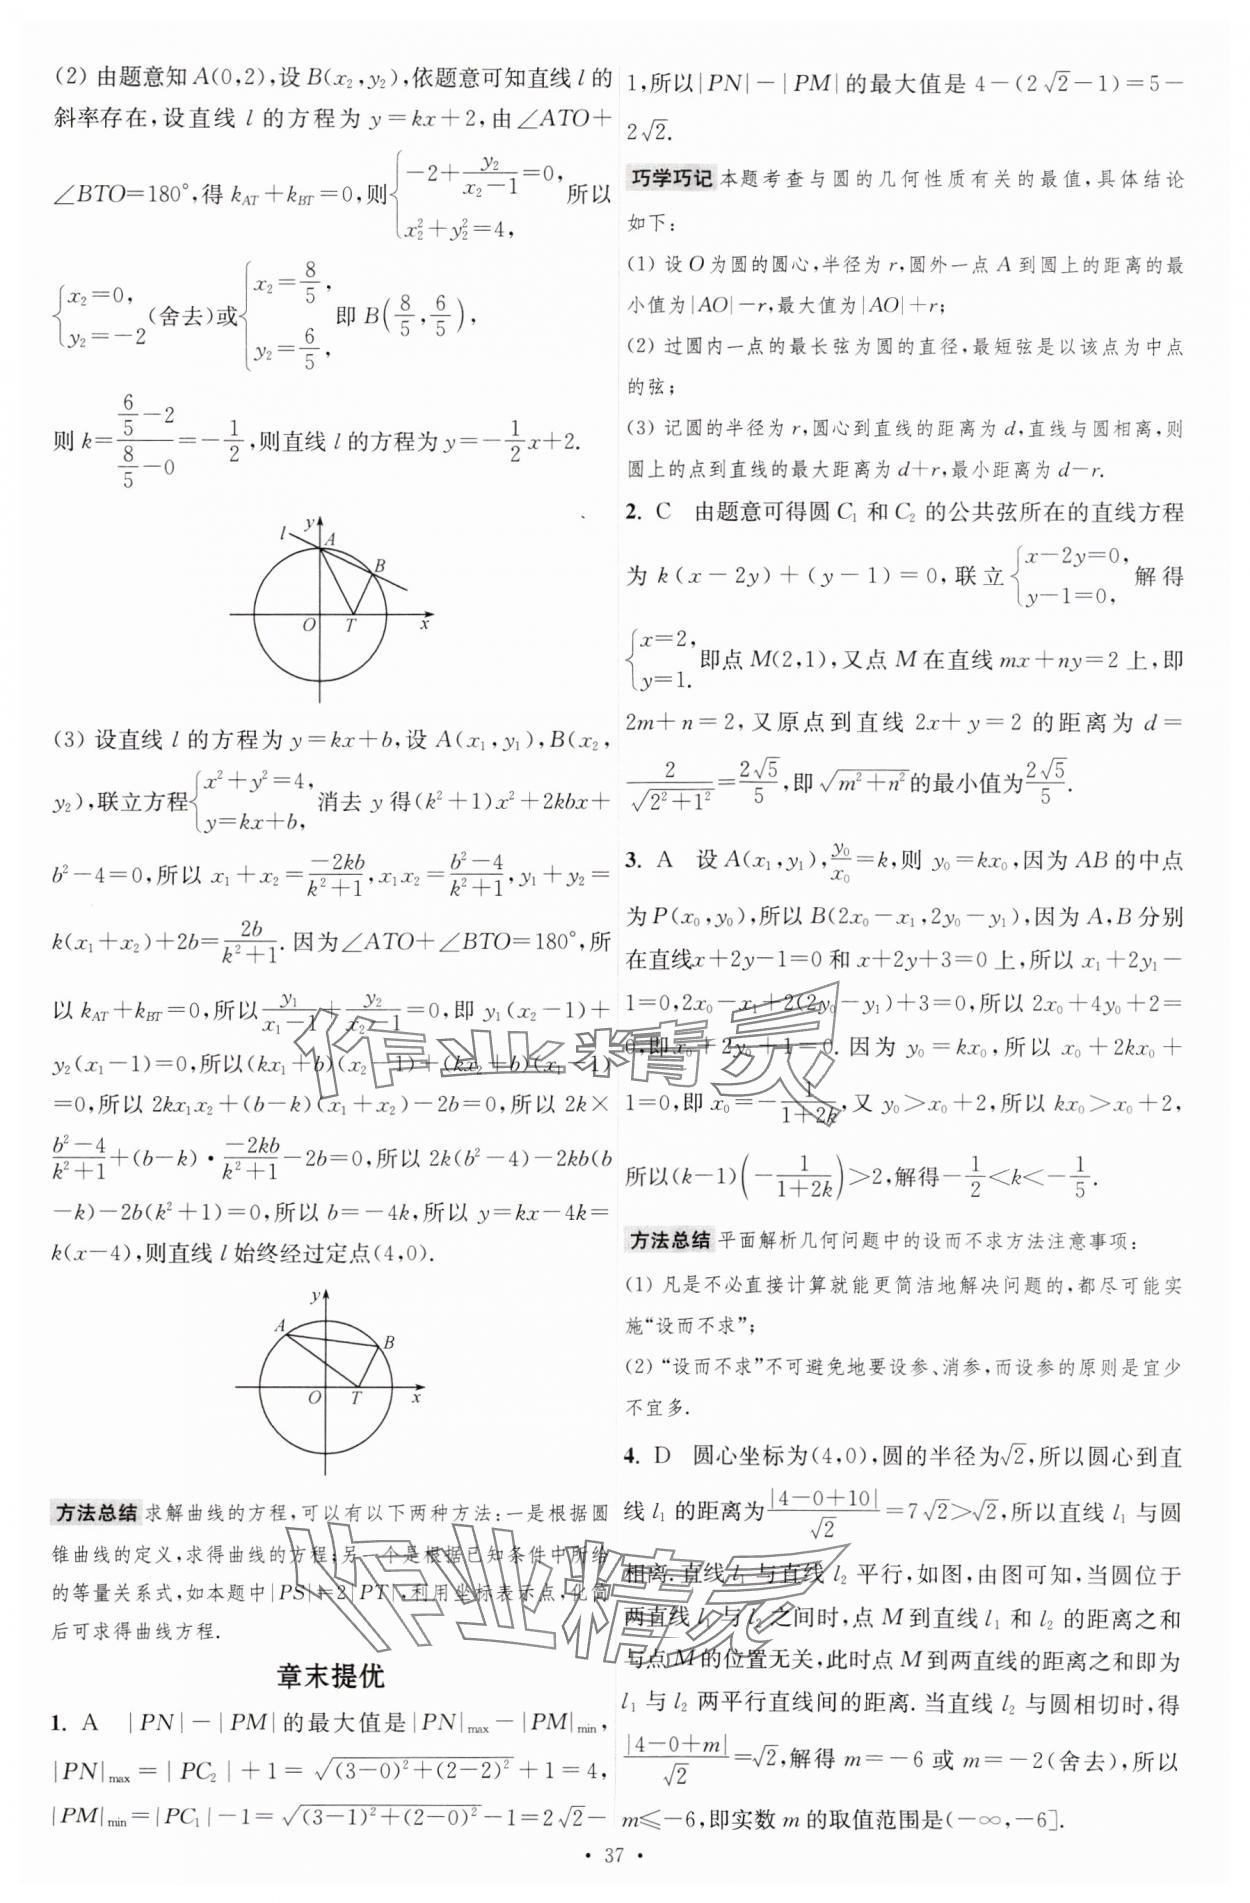 (2) 由题意知 A(0,2),设 B(x₂,y₂),依题意可知直线 l 的
斜率存在,设直线 l 的方程为 y=kx+2,由∠ATO+
∠BTO=180°,得 k_AT+k_BT=0,则{−2+y₂/(x₂−1)=0, x₂²+y₂²=4, 所以
{x₂=0, y₂=−2 (舍去)或{x₂=8/5, y₂=6/5, 即 B(8/5,6/5),
则 k=(6/5−2)/(8/5−0)=−1/2,则直线 l 的方程为 y=−1/2x+2.
l y A B O T x
(3) 设直线 l 的方程为 y=kx+b,设 A(x₁,y₁),B(x₂,
y₂),联立方程{x²+y²=4, y=kx+b, 消去 y 得(k²+1)x²+2kbx+
b²−4=0,所以 x₁+x₂=−2kb/(k²+1),x₁x₂=(b²−4)/(k²+1),y₁+y₂=
k(x₁+x₂)+2b=2b/(k²+1).因为∠ATO+∠BTO=180°,所
以 k_AT+k_BT=0,所以y₁/(x₁−1)+y₂/(x₂−1)=0,即 y₁(x₂−1)+
y₂(x₁−1)=0,所以(kx₁+b)(x₂−1)+(kx₂+b)(x₁−1)
=0,所以 2kx₁x₂+(b−k)(x₁+x₂)−2b=0,所以 2k×
(b²−4)/(k²+1)+(b−k)·−2kb/(k²+1)−2b=0,所以 2k(b²−4)−2kb(b
−k)−2b(k²+1)=0,所以 b=−4k,所以 y=kx−4k=
k(x−4),则直线 l 始终经过定点(4,0).
y A B O T x
方法总结 求解曲线的方程,可以有以下两种方法:一是根据圆
锥曲线的定义,求得曲线的方程;另一个是根据已知条件中所给
的等量关系式,如本题中|PS|=2|PT|,利用坐标表示点,化简
后可求得曲线方程.
章末提优
1. A |PN|−|PM|的最大值是|PN|max−|PM|min,
|PN|max=|PC₂|+1=√((3−0)²+(2−2)²)+1=4,
|PM|min=|PC₁|−1=√((3−1)²+(2−0)²)−1=2√2−
1,所以|PN|−|PM|的最大值是 4−(2√2−1)=5−
2√2.
巧学巧记 本题考查与圆的几何性质有关的最值,具体结论
如下:
(1) 设 O 为圆的圆心,半径为 r,圆外一点 A 到圆上的距离的最
小值为|AO|−r,最大值为|AO|+r;
(2) 过圆内一点的最长弦为圆的直径,最短弦是以该点为中点
的弦;
(3) 记圆的半径为 r,圆心到直线的距离为 d,直线与圆相离,则
圆上的点到直线的最大距离为 d+r,最小距离为 d−r.
2. C 由题意可得圆 C₁ 和 C₂ 的公共弦所在的直线方程
为 k(x−2y)+(y−1)=0,联立{x−2y=0, y−1=0, 解得
{x=2, y=1. 即点 M(2,1),又点 M 在直线 mx+ny=2 上,即
2m+n=2,又原点到直线 2x+y=2 的距离为 d=
2/√(2²+1²)=2√5/5,即√(m²+n²)的最小值为2√5/5.
3. A 设 A(x₁,y₁),y₀/x₀=k,则 y₀=kx₀,因为 AB 的中点
为 P(x₀,y₀),所以 B(2x₀−x₁,2y₀−y₁),因为 A,B 分别
在直线x+2y−1=0 和 x+2y+3=0 上,所以 x₁+2y₁−
1=0,2x₀−x₁+2(2y₀−y₁)+3=0,所以 2x₀+4y₀+2=
0,即 x₀+2y₀+1=0.因为 y₀=kx₀,所以 x₀+2kx₀+
1=0,即 x₀=−1/(1+2k),又 y₀>x₀+2,所以 kx₀>x₀+2,
所以(k−1)(−1/(1+2k))>2,解得−1/2<k<−1/5.
方法总结 平面解析几何问题中的设而不求方法注意事项:
(1) 凡是不必直接计算就能更简洁地解决问题的,都尽可能实
施“设而不求”;
(2) “设而不求”不可避免地要设参、消参,而设参的原则是宜少
不宜多.
4. D 圆心坐标为(4,0),圆的半径为√2,所以圆心到直
线 l₁ 的距离为|4−0+10|/√2=7√2>√2,所以直线 l₁ 与圆
相离.直线 l₁ 与直线 l₂ 平行,如图,由图可知,当圆位于
两直线 l₁ 与 l₂ 之间时,点 M 到直线 l₁ 和 l₂ 的距离之和
与点 M 的位置无关,此时点 M 到两直线的距离之和即为
l₁ 与 l₂ 两平行直线间的距离.当直线 l₂ 与圆相切时,得
|4−0+m|/√2=√2,解得 m=−6 或 m=−2(舍去),所以
m≤−6,即实数 m 的取值范围是(−∞,−6].
• 37 •
作业精灵
作业精灵